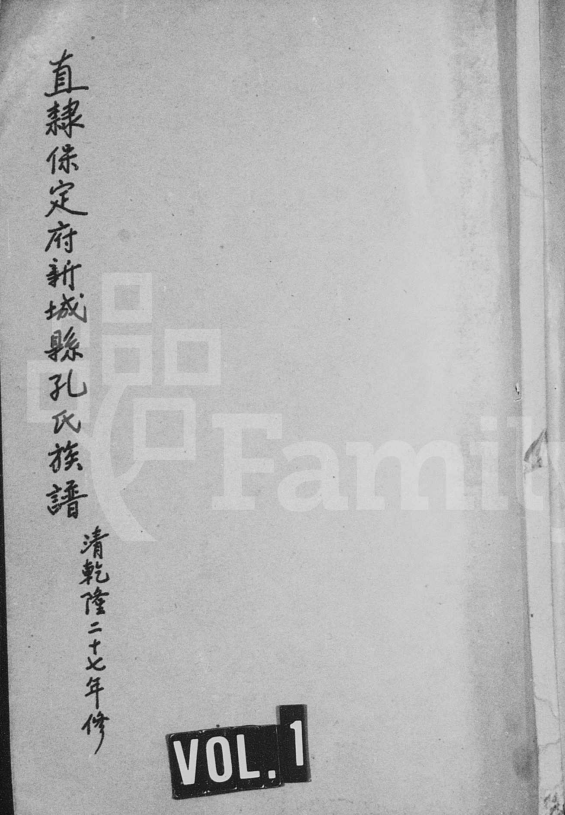 直隸保定府新城縣孔氏族譜
清乾隆二十七年修
VOL. 1
Family